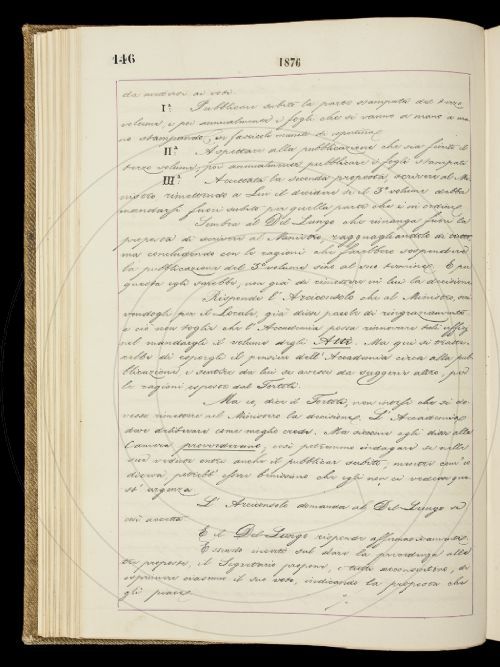 146
1876
da mettersi ai voti.
Iª. Pubblicare subito la parte stampata del terzo
volume, e poi annualmente i fogli che si vanno a mano a ma-
no stampando, in fascicoli muniti di copertina.
IIª. Aspettare alla pubblicazione che sia finito il
terzo volume, poi annualmente pubblicare i fogli stampati.
IIIª. Accettata la seconda proposta, scrivere al Mi-
nistro rimettendo a Lui il decidere se il 3º volume debba
mandarsi fuori subito per quella parte che è in ordine.
Sembra al Del Lungo che rimanga fuori la
proposta di scrivere al Ministro, ragguagliandolo di tutto,
ma concludendo con le ragioni che farebbero sospendere
la pubblicazione del 3º volume sino al suo termine. E per
questa egli sarebbe, non già di rimettere in lui la decisione.
Risponde l'Arciconsolo che al Ministro, scri-
vendogli per il Locale, già disse parole di ringraziamento,
e ciò non toglie che l'Accademia possa rinnovare tali uffizj
nel mandargli il volume degli Atti. Ma qui si tratte-
rebbe di esporgli il pensiero dell'Accademia circa alla pub-
blicazione e sentire da lui se avesse da suggerir altro, per
le ragioni esposte dal Tortoli.
Ma io, dice il Tortoli, non intesi che si do-
vesse rimettere nel Ministro la decisione. L'Accademia
deve deliberare come meglio crede. Ma siccome egli disse alla
Camera provvederemo, così potremmo indagare se nelle
sue vedute entra anche il pubblicar subito, mentre com'io
diceva potrebb'essere benissimo che egli non ci vedesse que-
st'urgenza.
L'Arciconsolo domanda al Del-Lungo se
così accetta.
E il Del-Lungo risponde affermativamente.
Essendo incerti sul dare la precedenza alle
tre proposte, il Segretario propone, e tutti acconsentono, di
esprimere ciascuno il suo voto, indicando la proposta che
gli piace.